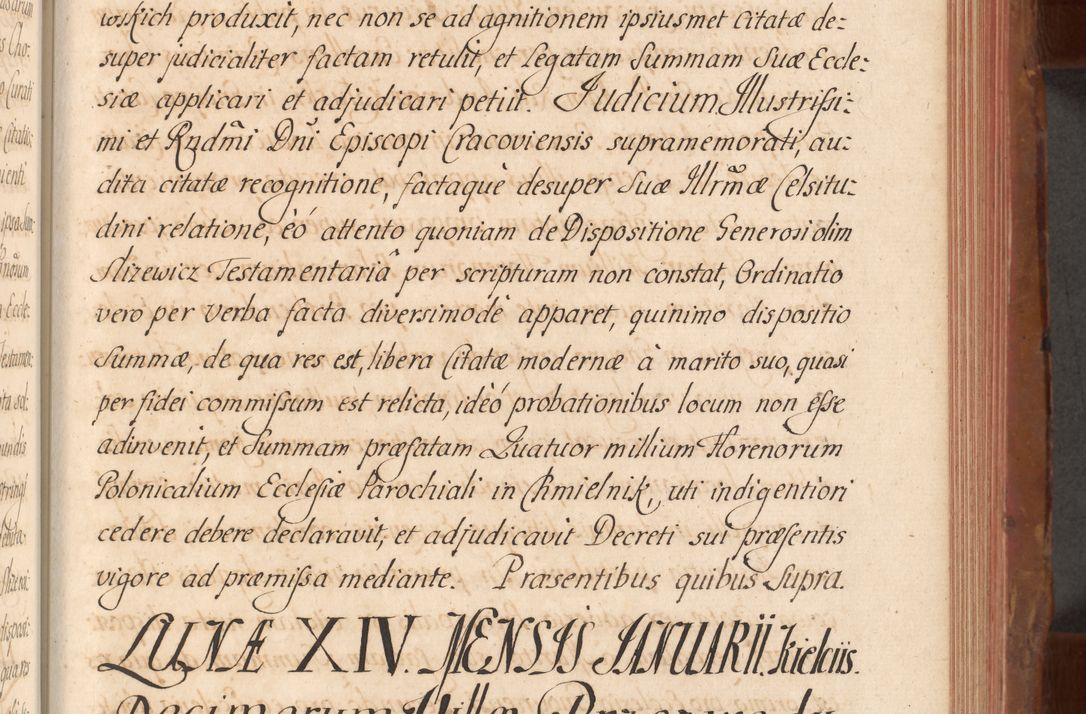 wskich produxit, nec non se ad agnitionem ipsiusmet Citatæ de:
super judicialiter factam retulit, et Legatam Summam Suæ Eccle:
siæ applicari et adjudicari petiit. Judicium Illustrissi:
mi et Rndmi Dni Episcopi Cracoviensis supramemorati, au:
dita citatæ recognitione, factaquè desuper Suæ Illrmæ Celsitu:
dini relatione, èó attento quoniam de Dispositione Generosi olim
Slizewicz Testamentariâ per scripturam non constat, Ordinatio
vero per verba facta diversimodè apparet, quinimo dispositio
Summæ, de qua res est, libera Citatæ modernæ à marito suo, quasi
per fidei commissum est relicta, idèó probationibus locum non esse
adinvenit, et Summam præfatam Quatuor millium Florenorum
Polonicalium Ecclesiæ Parochiali in Chmielnik, uti indigentiori
cedere debere declaravit, et adjudicavit Decreti sui præsentis
vigore ad præmissa mediante. Præsentibus quibus Supra.
LUNÆ XIV. MENSIS JANUARII. Kielciis.
Decimarum Villæ